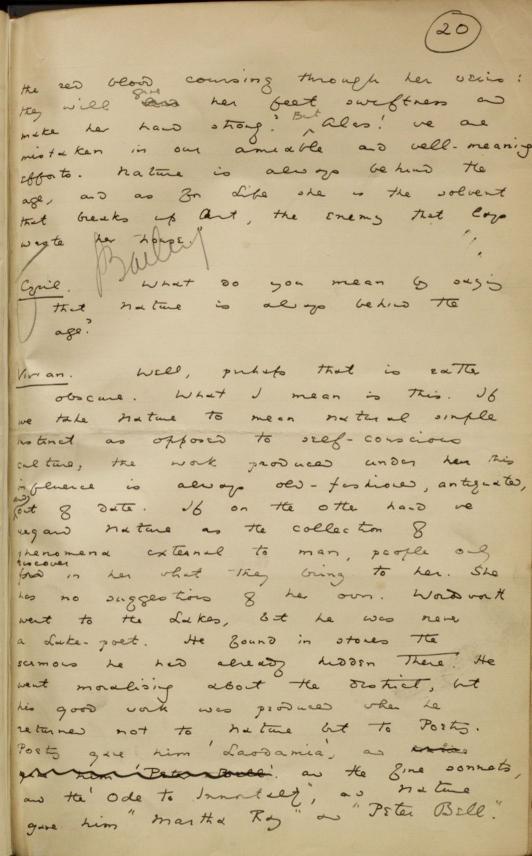 20
the red blood coursing through her veins :
they will give her feet swiftness and
make her hand strong." But Alas! we are
mistaken in our amiable and well-meaning
efforts. Nature is always behind the
age, and as for Life she is the solvent
that breaks up Art, the enemy that lays
waste her house."
Bailey
Cyril. What do you mean by saying
that Nature is always behind the
age?
Vivian. Well, perhaps that is rather
obscure. What I mean is this. If
we take Nature to mean natural simple
instinct as opposed to self-conscious
culture, the work produced under this
influence is always old-fashioned, antiquated,
and out of date. If on the other hand we
regard Nature as the collection of
phenomena external to man, people only
discover in her what they bring to her. She
has no suggestions of her own. Wordsworth
went to the Lakes, but he was never
a Lake-poet. He found in stones the
sermons he had already hidden there. He
went moralising about the district, but
his good work was produced when he
returned not to Nature but to Poetry.
Poetry gave him 'Laodamia', and
gave him 'Peter Bell'. and the fine sonnets,
and the 'Ode to Immortality", and Nature
gave him "Martha Ray" and "Peter Bell."